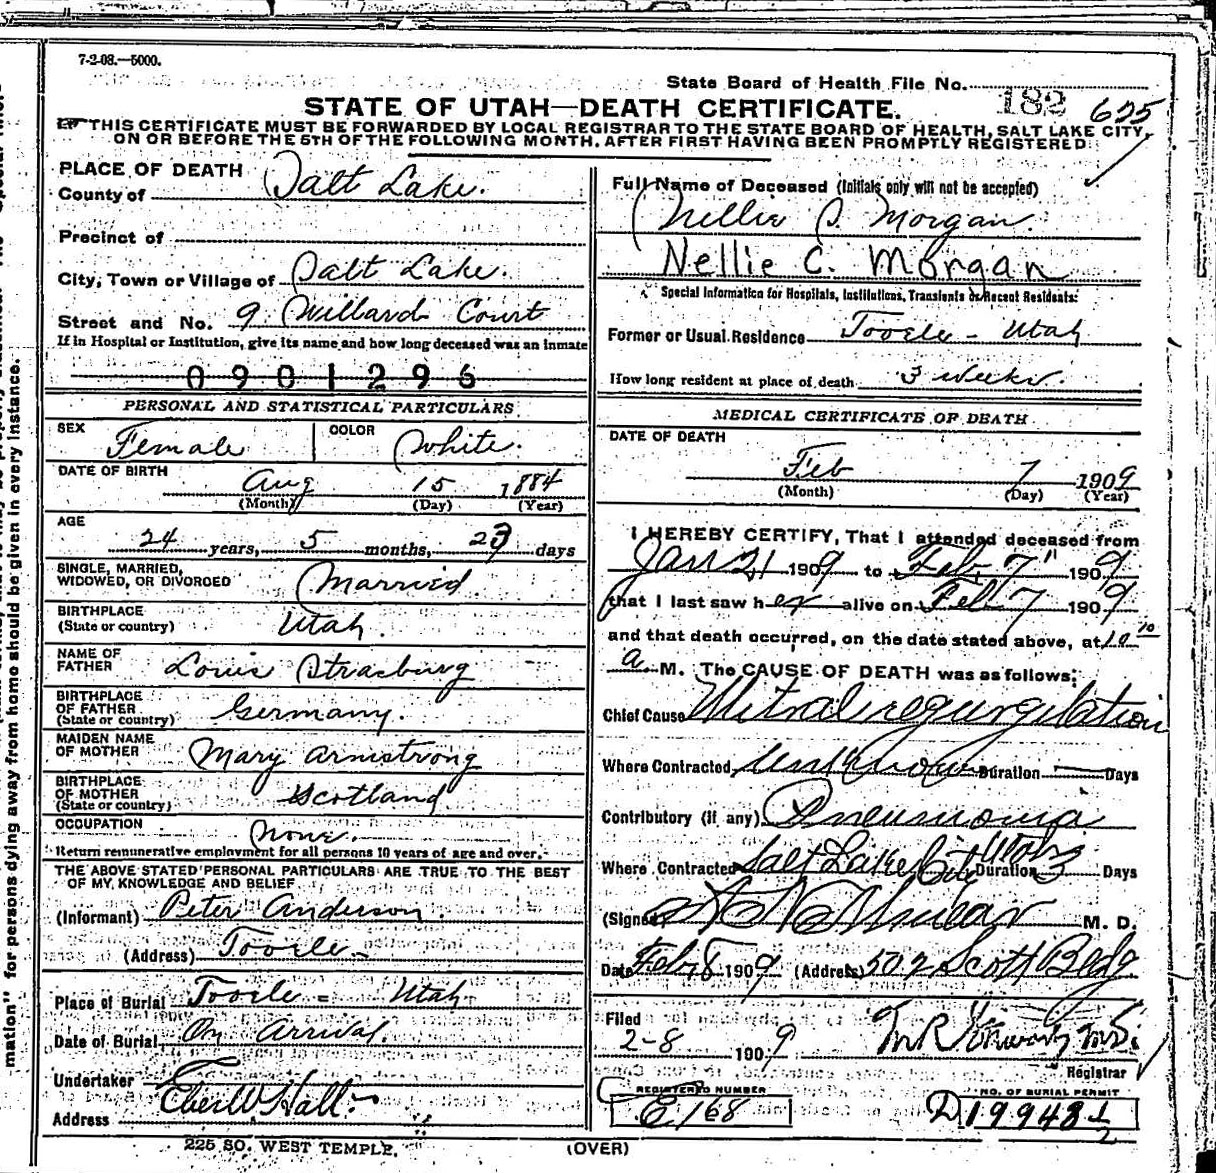 7-2-08.—5000.
State Board of Health File No. 182 625
STATE OF UTAH—DEATH CERTIFICATE.
THIS CERTIFICATE MUST BE FORWARDED BY LOCAL REGISTRAR TO THE STATE BOARD OF HEALTH, SALT LAKE CITY,
ON OR BEFORE THE 5TH OF THE FOLLOWING MONTH, AFTER FIRST HAVING BEEN PROMPTLY REGISTERED
PLACE OF DEATH
County of Salt Lake.
Precinct of
City, Town or Village of Salt Lake.
Street and No. 9 Willard Court
If in Hospital or Institution, give its name and how long deceased was an inmate
0901296
PERSONAL AND STATISTICAL PARTICULARS
SEX Female COLOR White.
DATE OF BIRTH Aug 15 1884
(Month) (Day) (Year)
AGE
24 years, 5 months, 23 days
SINGLE, MARRIED,
WIDOWED, OR DIVORCED Married.
BIRTHPLACE
(State or country) Utah.
NAME OF
FATHER Louis Strasburg
BIRTHPLACE
OF FATHER
(State or country) Germany.
MAIDEN NAME
OF MOTHER Mary Armstrong
BIRTHPLACE
OF MOTHER
(State or country) Scotland
OCCUPATION None.
Return remunerative employment for all persons 10 years of age and over.
THE ABOVE STATED PERSONAL PARTICULARS ARE TRUE TO THE BEST
OF MY KNOWLEDGE AND BELIEF
(Informant) Peter Anderson.
(Address) Tooele
Place of Burial Tooele - Utah
Date of Burial On Arrival.
Undertaker
Eber W Hall.
Address
225 SO. WEST TEMPLE.
(OVER)
Full Name of Deceased (Initials only will not be accepted)
Nellie C. Morgan.
Nellie C. Morgan
Special Information for Hospitals, Institutions, Transients or Recent Residents:
Former or Usual Residence Tooele - Utah
How long resident at place of death 3 weeks.
MEDICAL CERTIFICATE OF DEATH
DATE OF DEATH
Feb 7 1909
(Month) (Day) (Year)
I HEREBY CERTIFY, That I attended deceased from
Jan 21 1909 to Feb 7" 1909
that I last saw her alive on Feb 7 1909
and that death occurred, on the date stated above, at 10 10
a M. The CAUSE OF DEATH was as follows:
Chief Cause Mitral regurgitation
Where Contracted Unknown Duration — Days
Contributory (if any) Pneumonia
Where Contracted Salt Lake City Utah Duration 3 Days
(Signed) M. D.
Date Feb 8 1909 (Address) 502 Scott Bldg
Filed
2-8 1909
Registrar
REGISTERED NUMBER
E 168
NO. OF BURIAL PERMIT
D 19948½
mation" for persons dying away from home should be given in every instance.